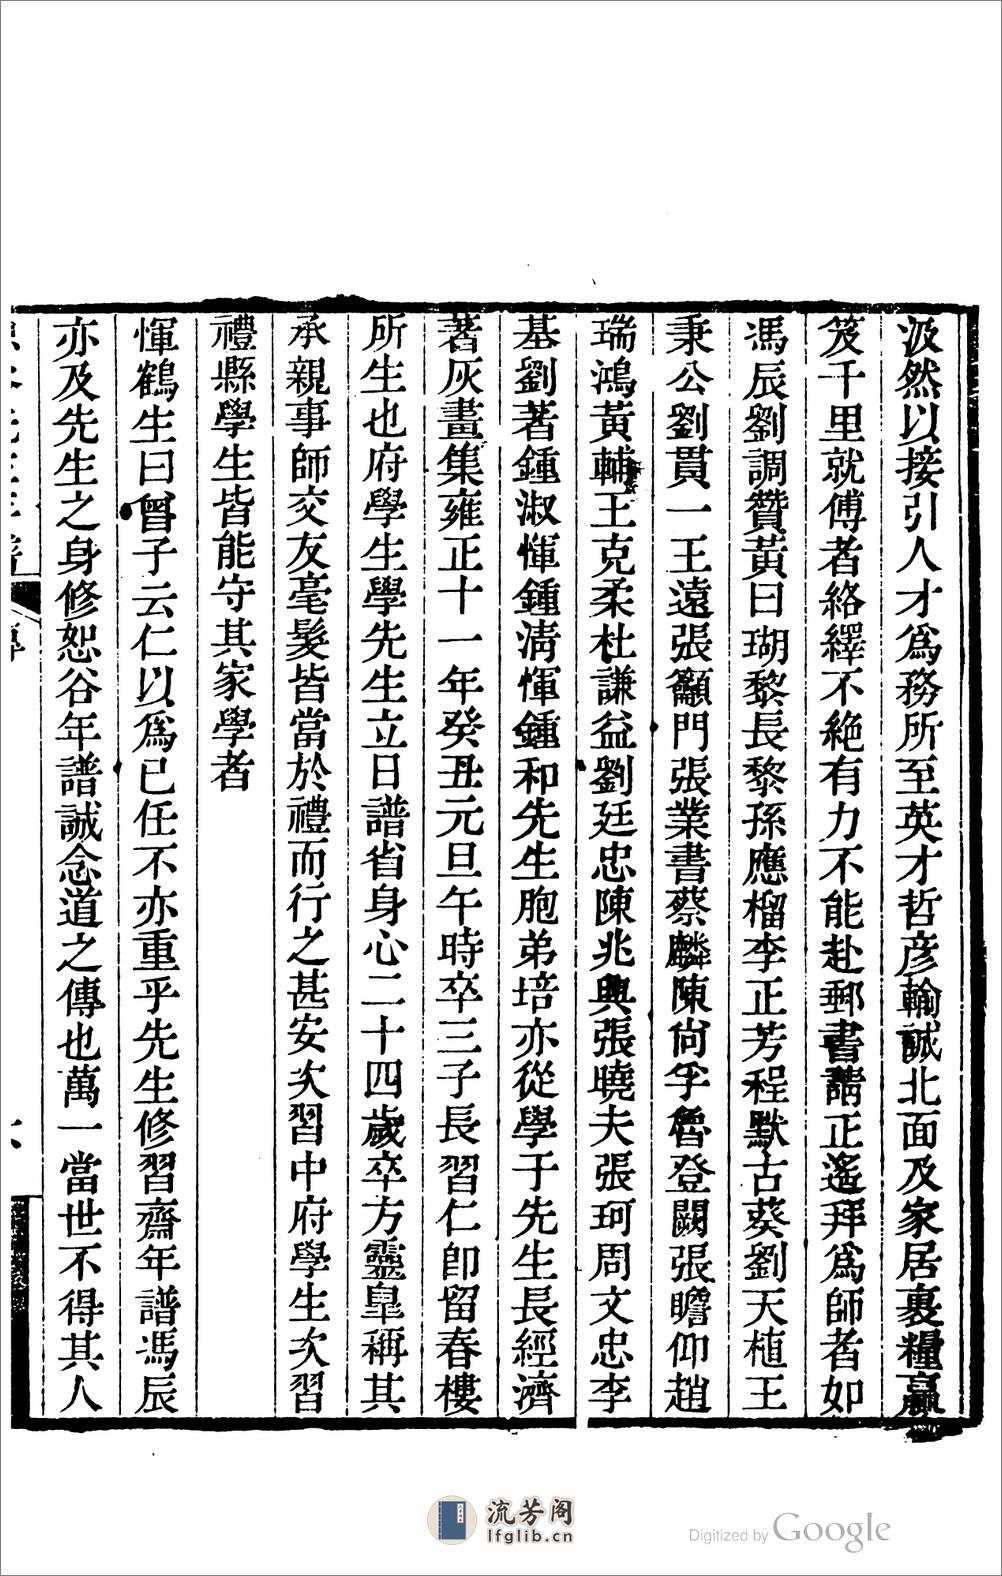 汲然以接引人才爲務所至英才哲彦輸誠北面及家居裹糧贏
笈千里就傅者絡繹不絶有力不能赴郵書請正遙拜爲師者如
馮辰劉調贊黃曰瑚黎長黎孫應榴李正芳程默古葵劉天植王
秉公劉貫一王遠張籲門張業書蔡麟陳尙孚魯登闕張瞻仰趙
瑞鴻黃輔王克柔杜謙益劉廷忠陳兆興張曉夫張珂周文忠李
基劉著鍾淑惲鍾淸惲鍾和先生胞弟培亦從學于先生長經濟
著灰畫集雍正十一年癸丑元旦午時卒三子長習仁卽留春樓
所生也府學生學先生立日譜省身心二十四歲卒方靈皐稱其
承親事師交友毫髮皆當於禮而行之甚安次習中府學生次習
禮縣學生皆能守其家學者
惲鶴生曰曾子云仁以爲已任不亦重乎先生修習齋年譜馮辰
亦及先生之身修恕谷年譜誠念道之傳也萬一當世不得其人
流芳阁
lfglib.cn
Digitized by Google